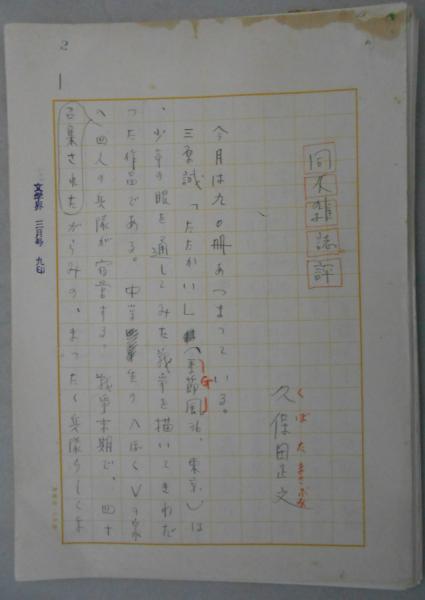 2
同人雑誌評
久保田正文
くぼたまさふみ
今月は九〇冊あつまっている。
三原誠「たたかい」(季節風36、東京)は
、少年の眼を通してみた戦争を描いてきわだ
った作品である。中学生の〈ぼく〉の家
へ四人の兵隊が宿営する。戦争末期で、四十
召集された
がらみの、まったく兵隊らしくな
文学界 三月号 九印